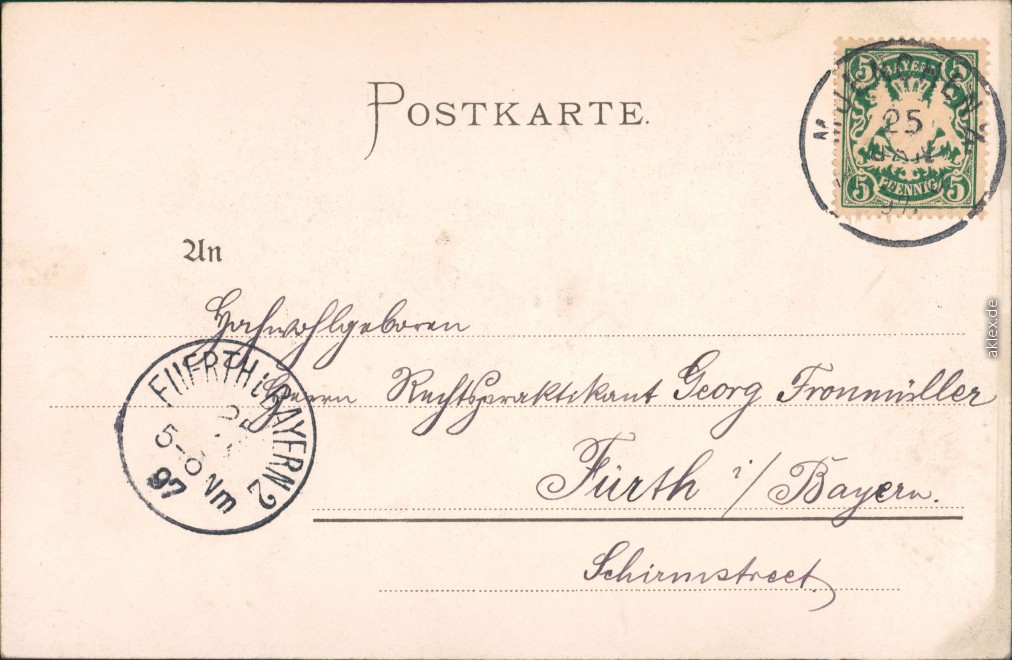 POSTKARTE.
BAYERN
5 5
MUENCHEN
25
5 5
PFENNIG
97.
An
Hochwohlgeboren
Herrn Rechtspraktikant Georg Fronmüller
Fürth i/Bayern.
FUERTH i/BAYERN 2
5-6 Nm
97
Schirmstreet.
aklex.de